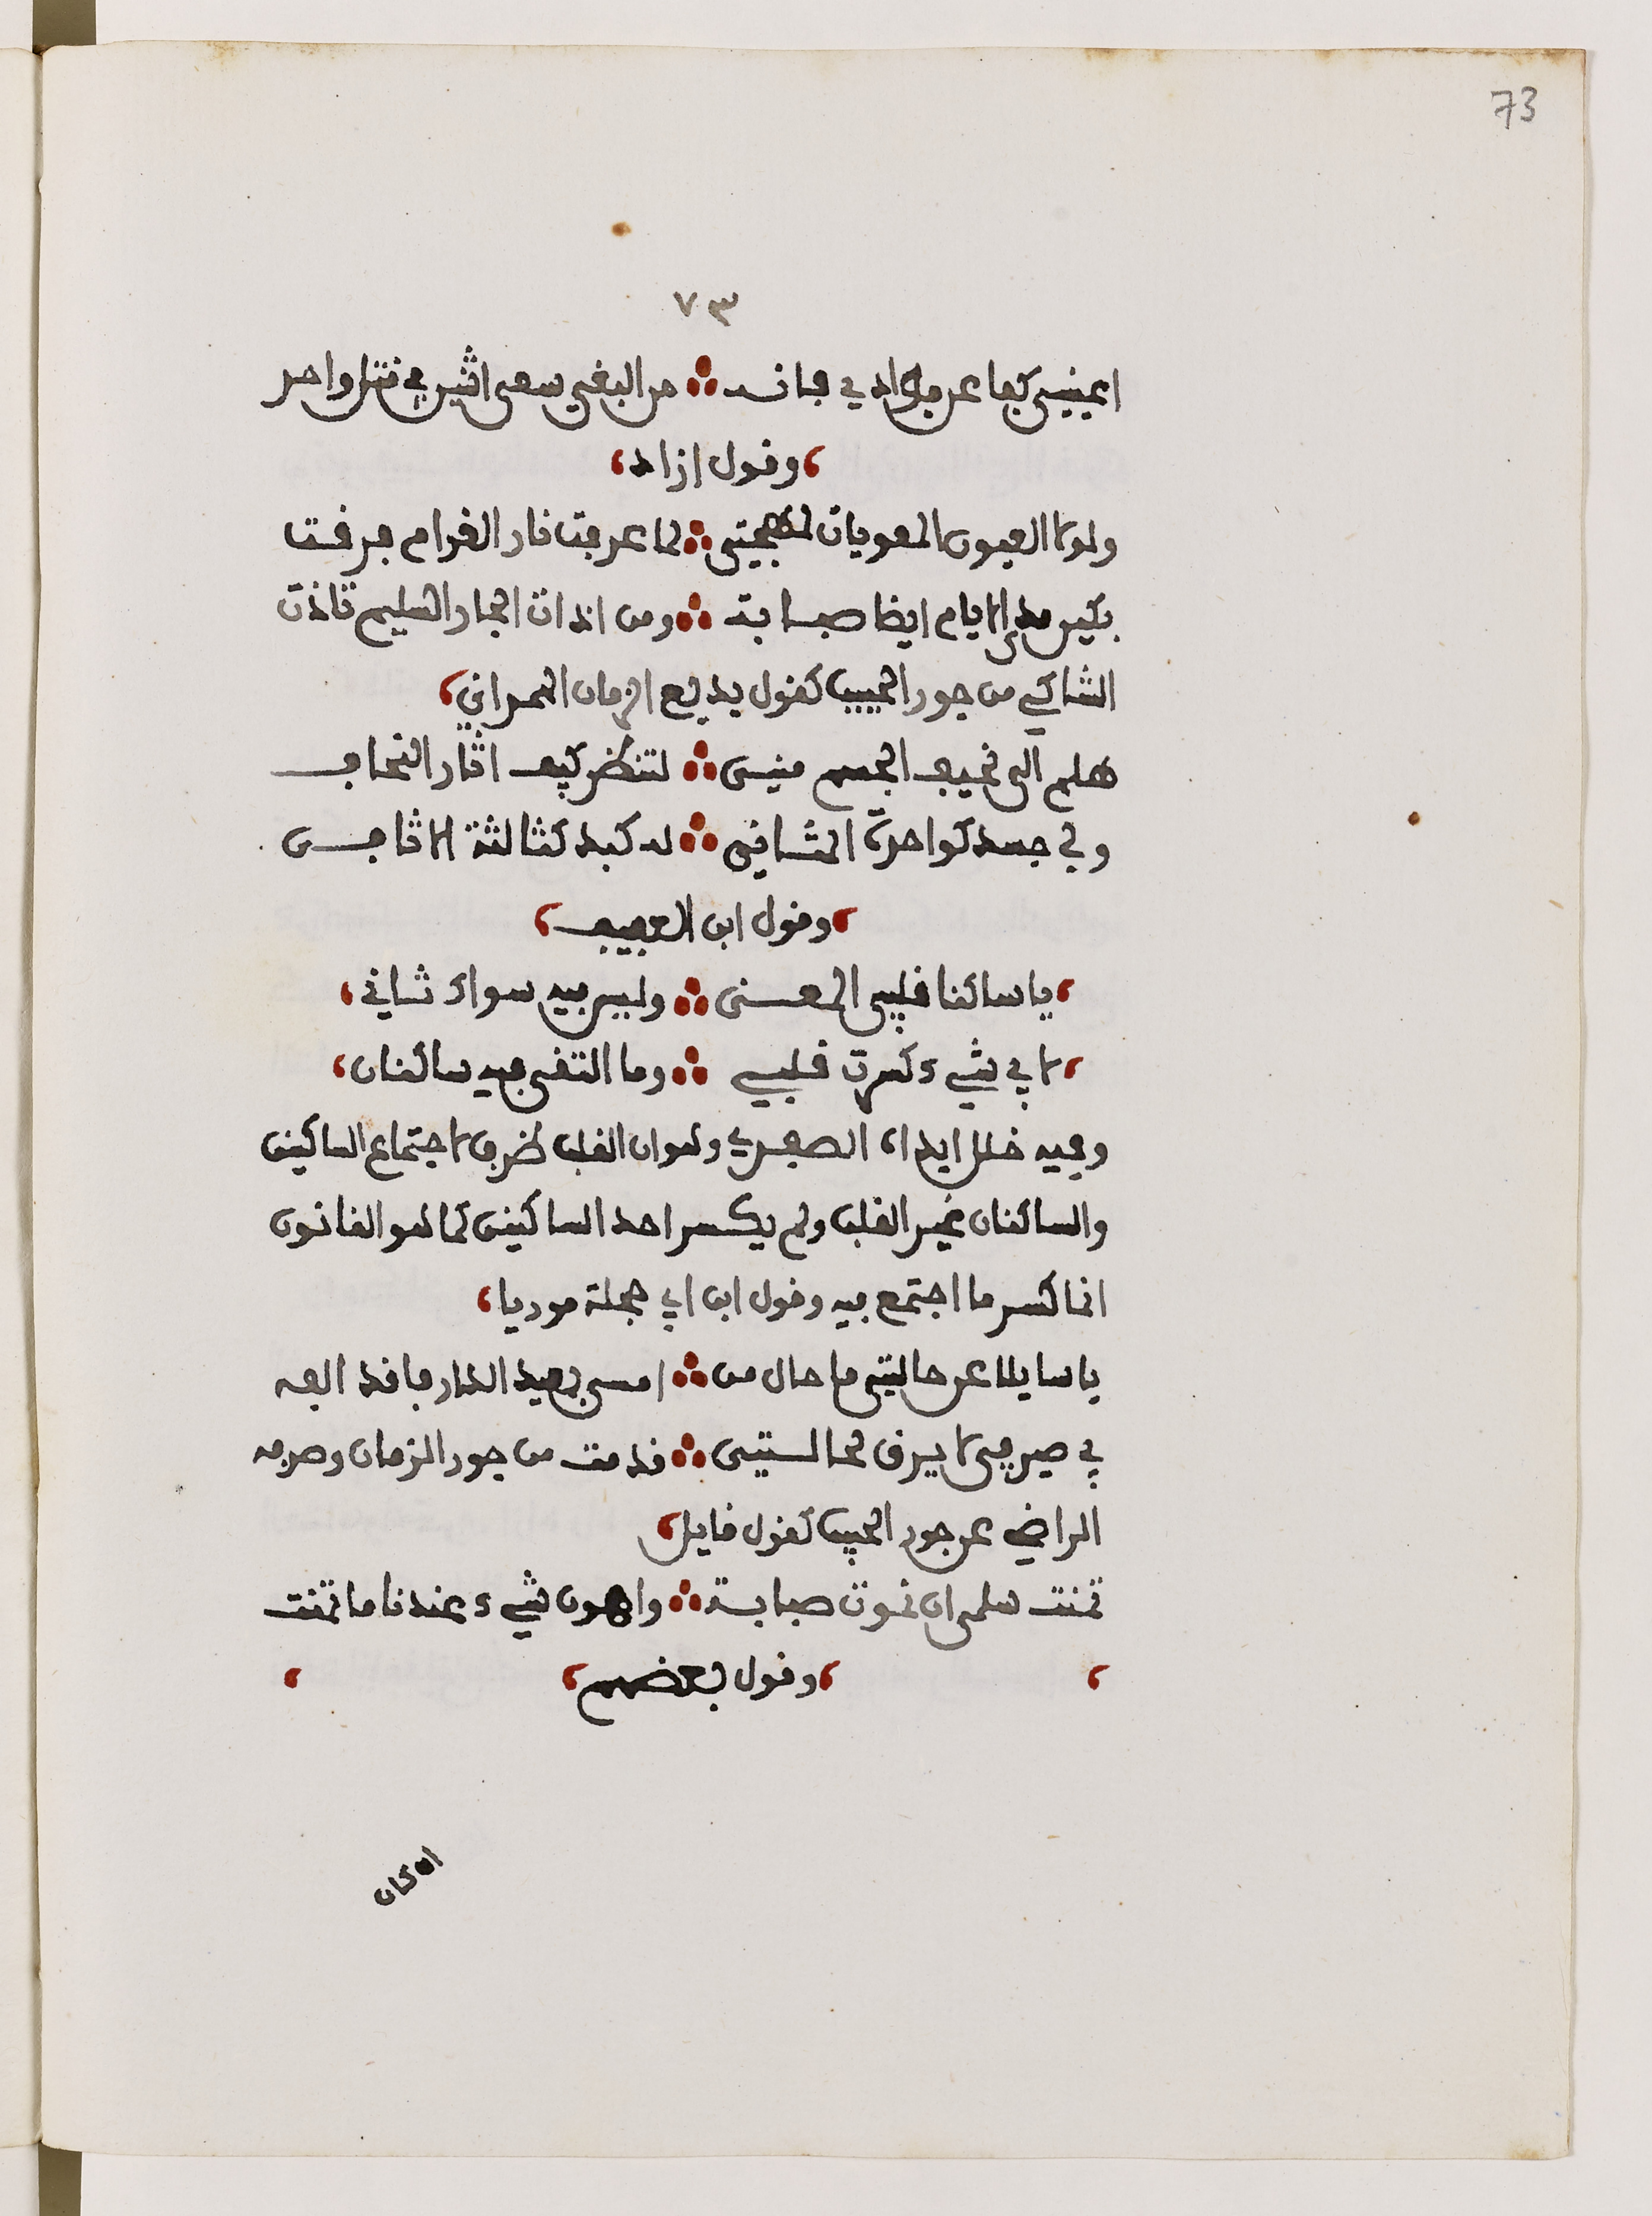 73
٧٣
اعينيي كفا عن فؤادي فانه ∴ من البغي سعي اثنين في قتل واحد
،وقول ازاد،
ولولا العيون المعويات لمهجتي ∴ لما عرفت نار الغرام حرقت
بكين مدى الايام ايضا صبابة ∴ ومن اذات الجار السليم تاذت
الشاكي من جور الحبيب كقول بديع الزمان الهمداني،
هلم الى نحيف الجسم منيى ∴ لتنظر كيف اثار النحاف
ولي جسد كواحدة المثاني ∴ له كبد كثالثة الاثافي
،وقول ابن العفيف،
،يا ساكنا قلبي المعنى ∴ وليس فيه سواك ثاني،
،لاي شيء كسرت قلبي ∴ وما التقى فيه ساكنان،
وفيه خلل ابداه الصفدي وهو ان القلب ظرف لاجتماع الساكنين
والساكنان غير القلب ولم يكسر احد الساكنين كما هو القانون
انما كسر ما اجتمع فيه وقول ابن ابي حجلة موريا،
يا سايلا عن حالتي ما حال من ∴ امسى بعيد الدار فاقد الفه
بي صيرفي لا يرق لحالستيى ∴ قد مت من جور الزمان وصرفه
الراضي عن جور الحبيب كقول قايل،
تمنت سلمى ان نموت صبابة ∴ واهون شيء عندنا ما تمنت
، ،وقول بعضهم، ،
ان كان